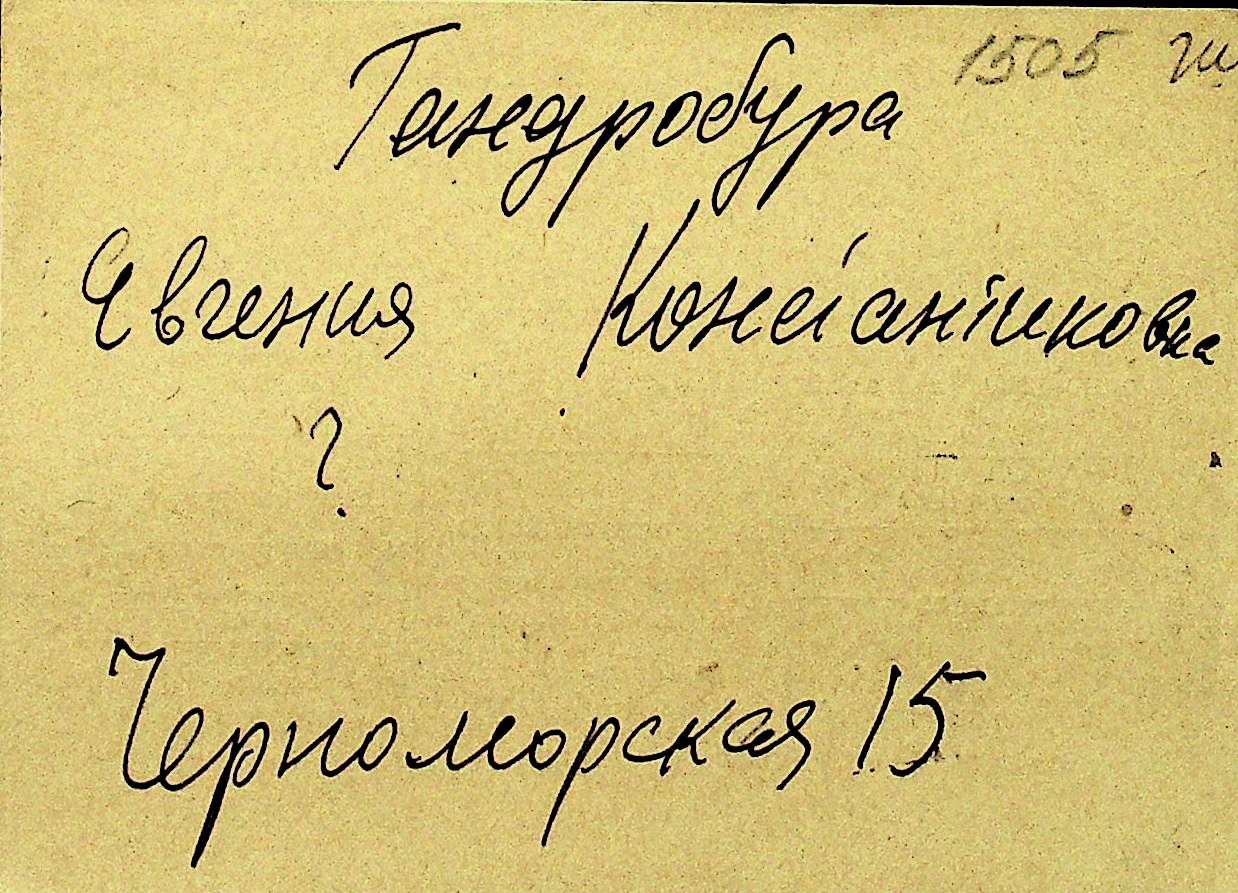 1505
Гандробура
Евгения Константиновна
?
Черноморская 15